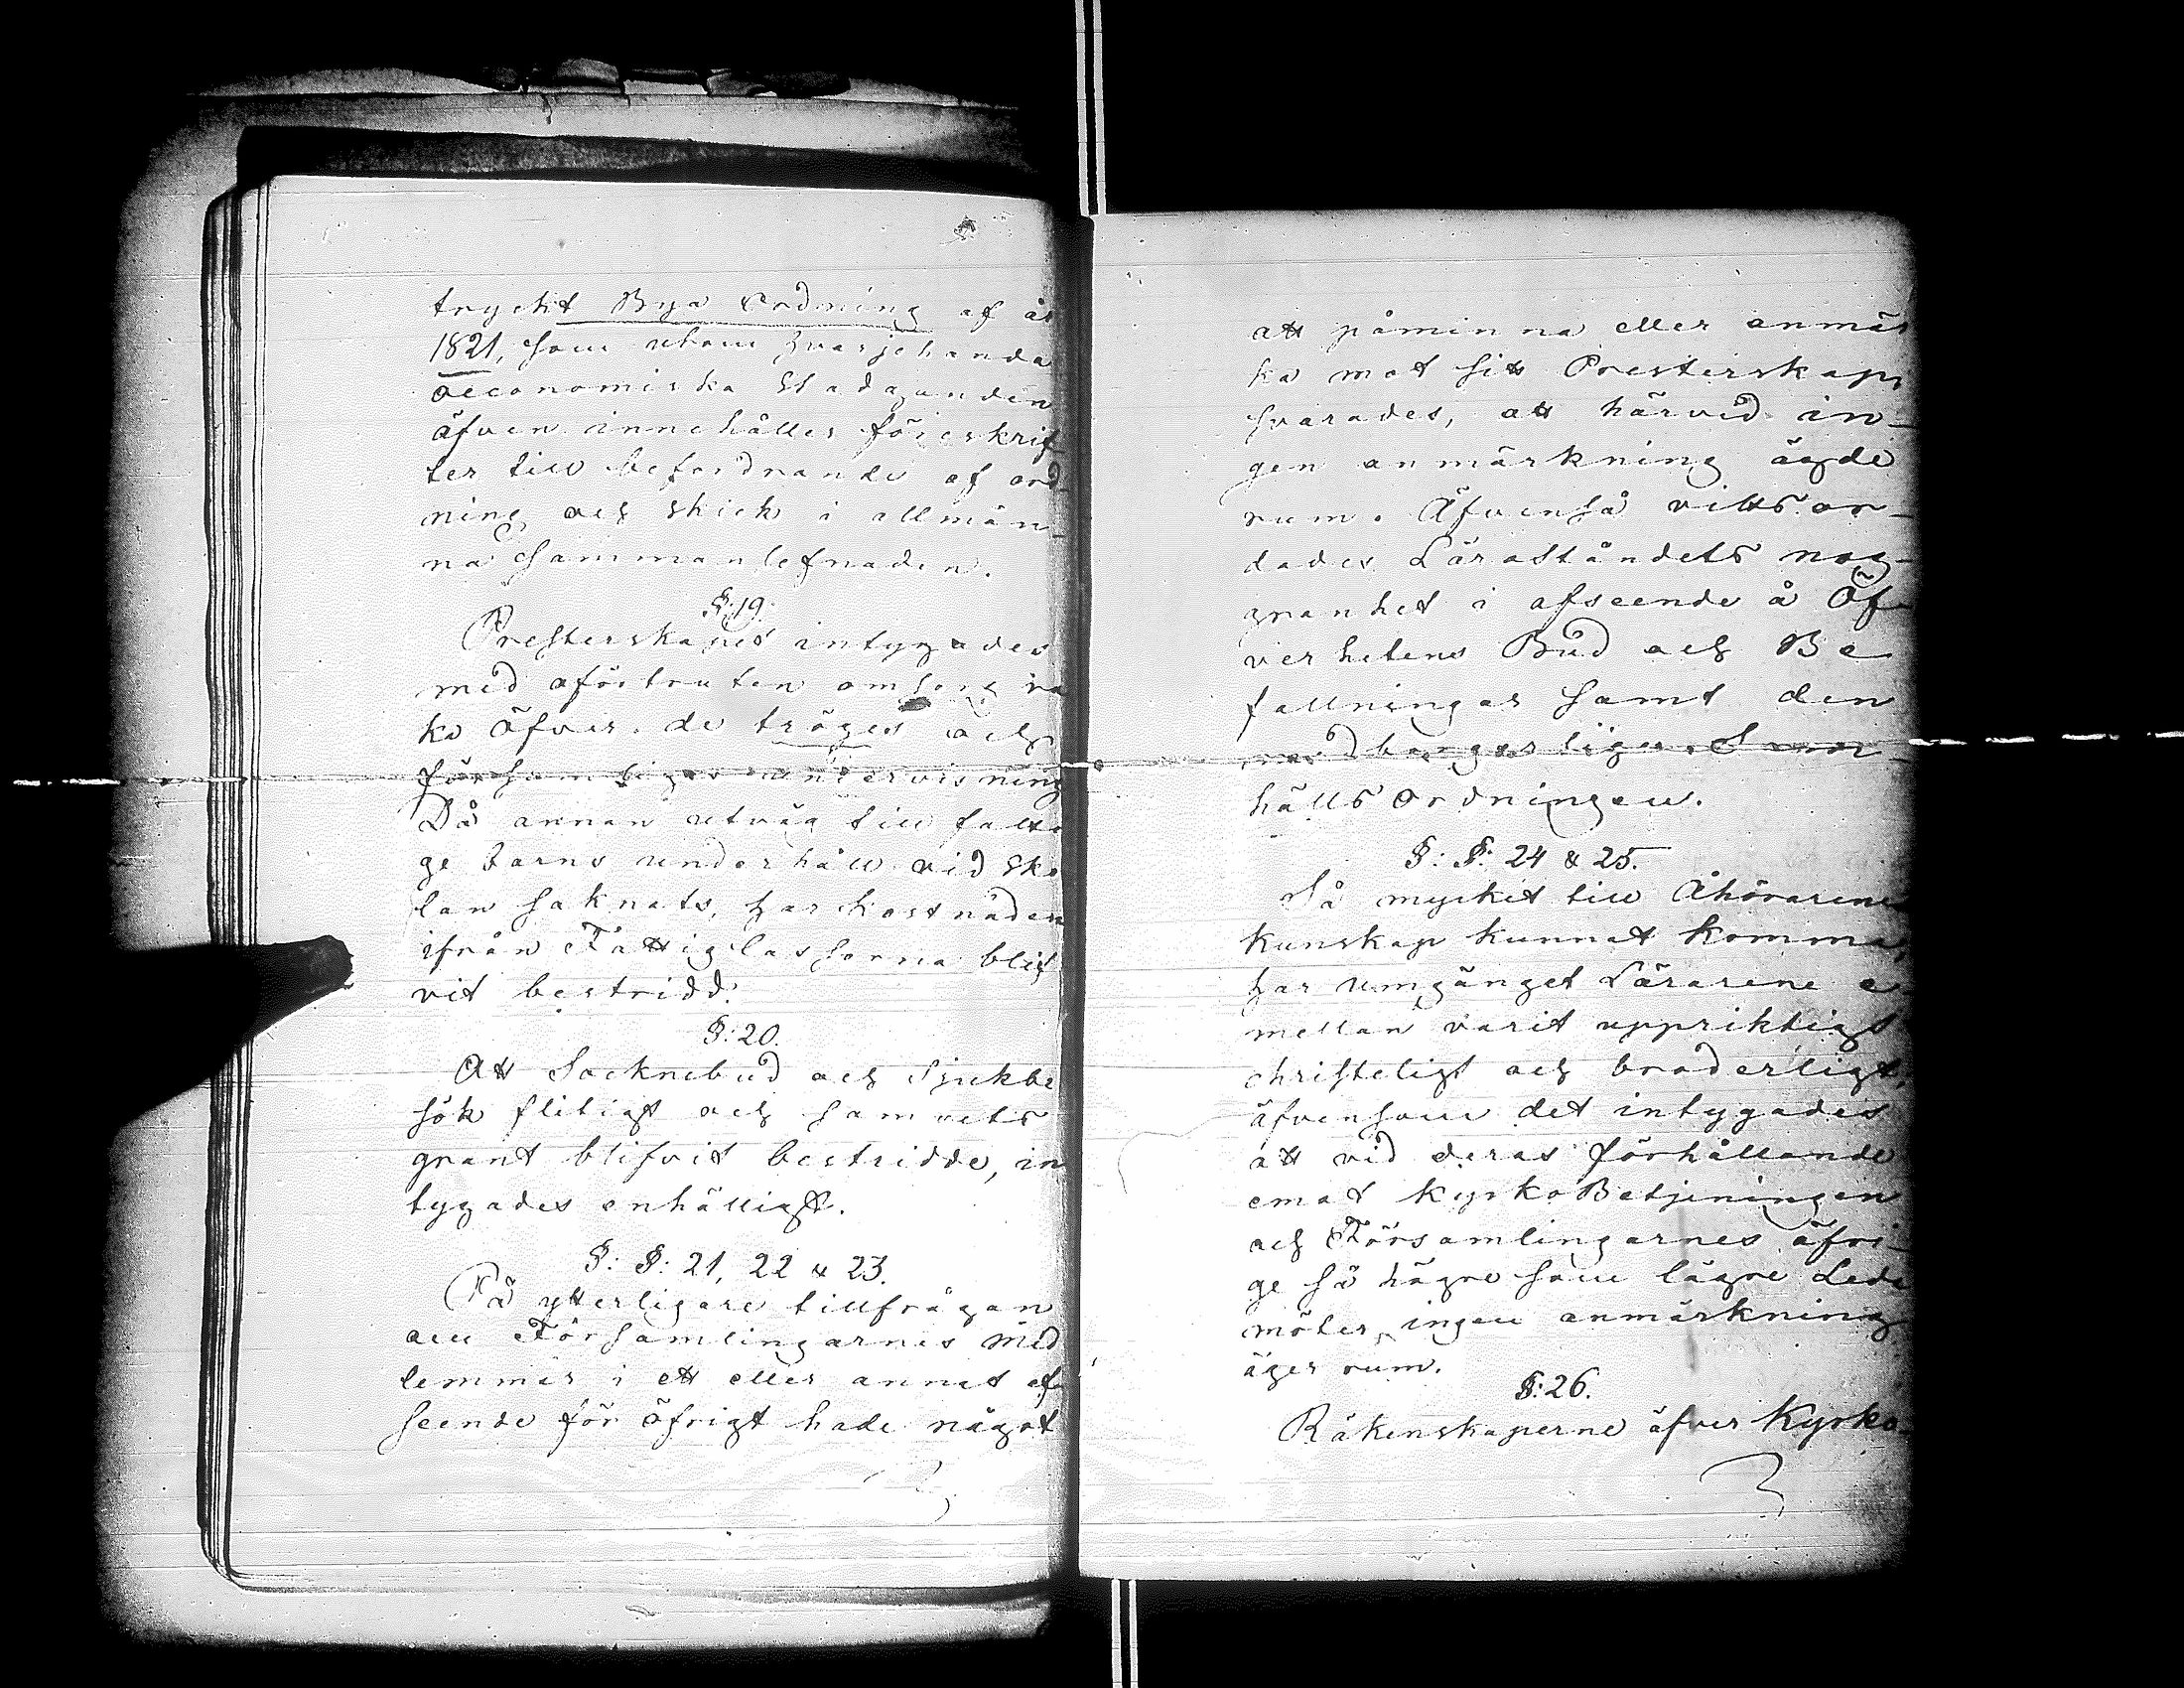 tryckt Bya Ordning af år
1821, som utom hvarjehanda
oeconomiska Stadganden
äfven innehåller föreskrif
ter till befordrande af ord-
ning och skick i allmän-
na sammanlefnaden.
§: 19.
Presterskapet intygades
med oförtruten omsorg va
ka öfver de tröges och
försumliges undervisning
Då annan utväg till fatti
ge barns underhåll vid Sko
lan saknats, har kostnaden
ifrån Fattigcassorna blif
vit bestridd.
§: 20.
Att Socknebud och Sjukbe
sök flitigt och samvets
grant blifvit bestridde, in
tygades enhälligt.
§: §: 21, 22 & 23.
På ytterligare tillfrågan
om Församlingarnes Med
lemmer i ett eller annat af
seende för öfrigt hade något
att påminna eller anmär
ka mot sitt Presterskap,
svarades, att härvid in-
gen anmärkning ägde
rum. Äfvenså vittsor-
dades Läroståndets nog-
granhet i afseende å Öf
verhetens Bud och Be
fallningar samt den
medborgerliga Sam-
hälls ordningen.
§: §: 24 & 25.
Så mycket till Åhörarenes
kunskap kunnat komma,
har umgänget Lärarene e
mellan varit uppriktigt
christeligt och broderligt,
äfvensom det intygades
att vid deras förhållande
emot KyrkoBetjeningen
och Församlingarnes öfri-
ge så högre som lägre Leda
möter, ingen anmärkning
äger rum.
§: 26.
Räkenskaperne öfver Kyrko-